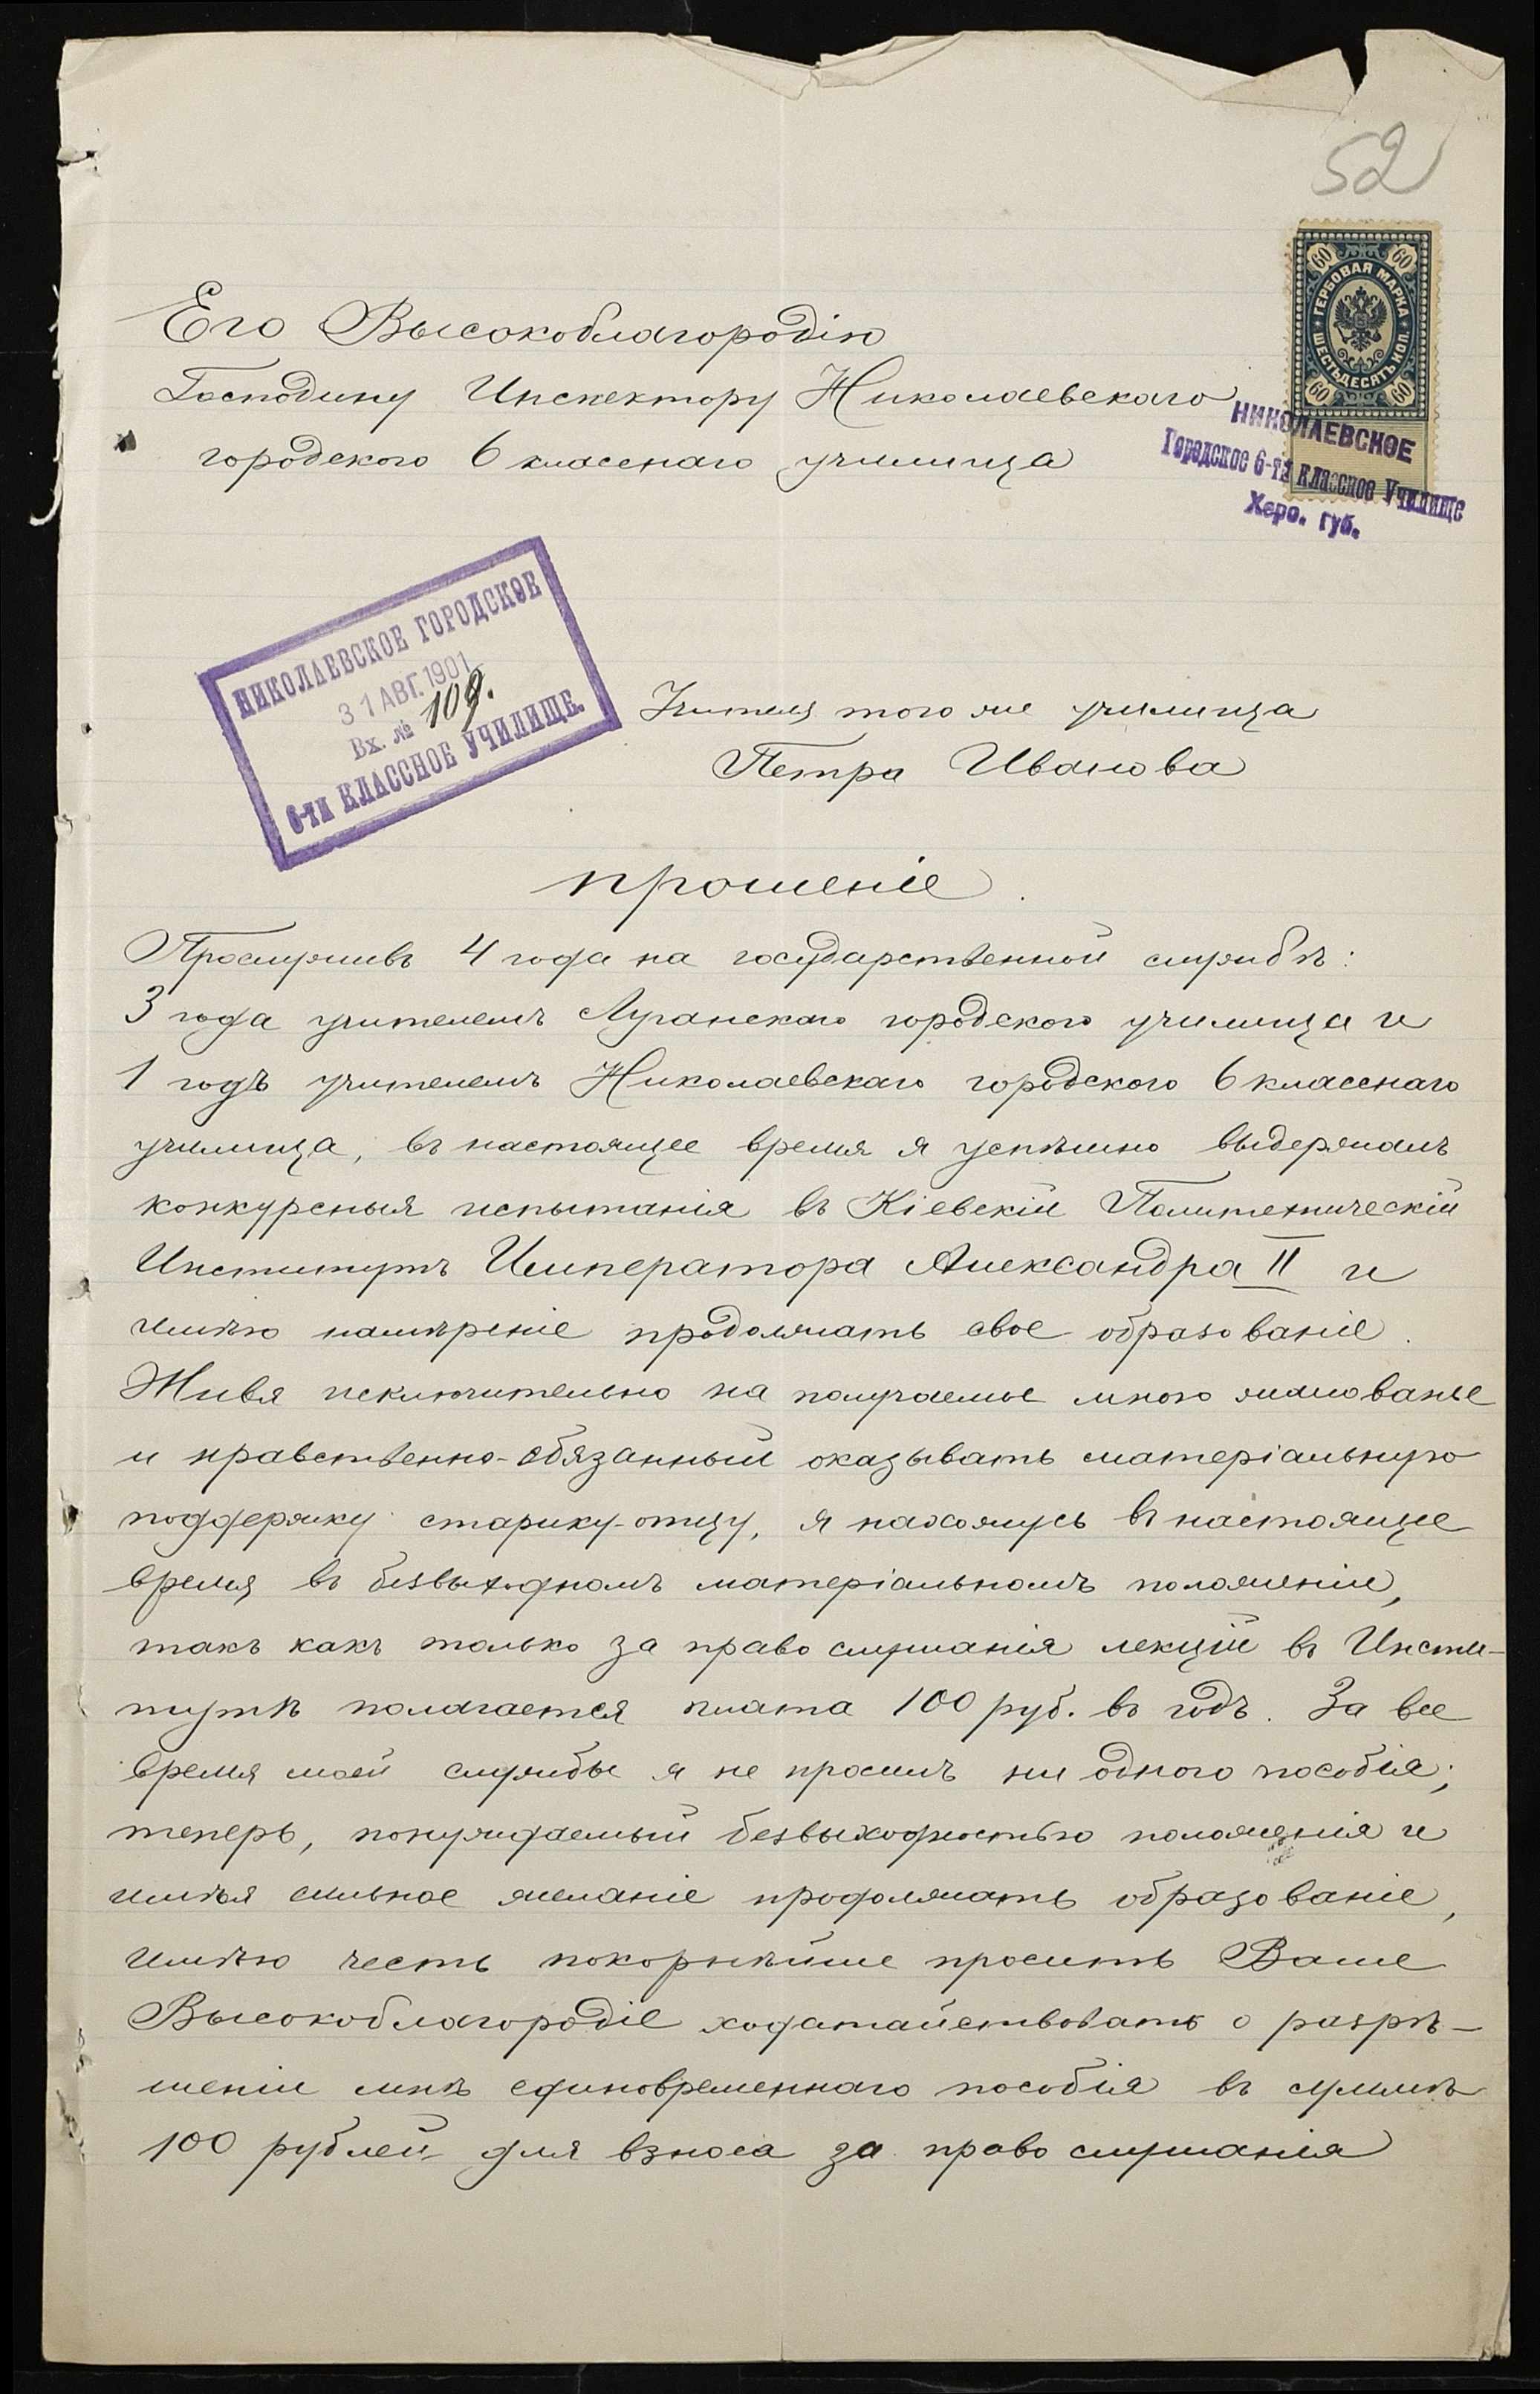 52
60 60
ГЕРБОВАЯ МАРКА
ШЕСТЬДЕСЯТЪ КОП.
60 60
Его Высокоблагородію
Господину Инспектору Николаевскаго
городского 6 класснаго училища
НИКОЛАЕВСКОЕ
Городское 6-ти классное Училище
Херс. губ.
НИКОЛАЕВСКОЕ ГОРОДСКОЕ
31 АВГ. 1901
Вх. № 109.
6-ТИ КЛАССНОЕ УЧИЛИЩЕ.
Учителя того же училища
Петра Иванова
прошеніе.
Прослуживъ 4 года на государственной службѣ:
3 года учителемъ Луганскаго городского училища и
1 годъ учителемъ Николаевскаго городского 6 класснаго
училища, въ настоящее время я успѣшно выдержалъ
конкурсныя испытанія въ Кіевскій Политехническій
Институтъ Императора Александра II и
имѣю намѣреніе продолжать свое образованіе.
Живя исключительно на получаемое мною жалованье
и нравственно-обязанный оказывать матеріальную
поддержку старику-отцу, я нахожусь въ настоящее
время въ безвыходномъ матеріальномъ положеніи,
такъ какъ только за право слушанія лекцій въ Инсти-
тутѣ полагается плата 100 руб. въ годъ. За все
время моей службы я не просилъ ни одного пособія;
теперь, понуждаемый безвыходностью положенія и
имѣя сильное желаніе продолжать образованіе,
имѣю честь покорнѣйше просить Ваше
Высокоблагородіе ходатайствовать о разрѣ-
шеніи мнѣ единовременнаго пособія въ суммѣ
100 рублей для взноса за право слушанія